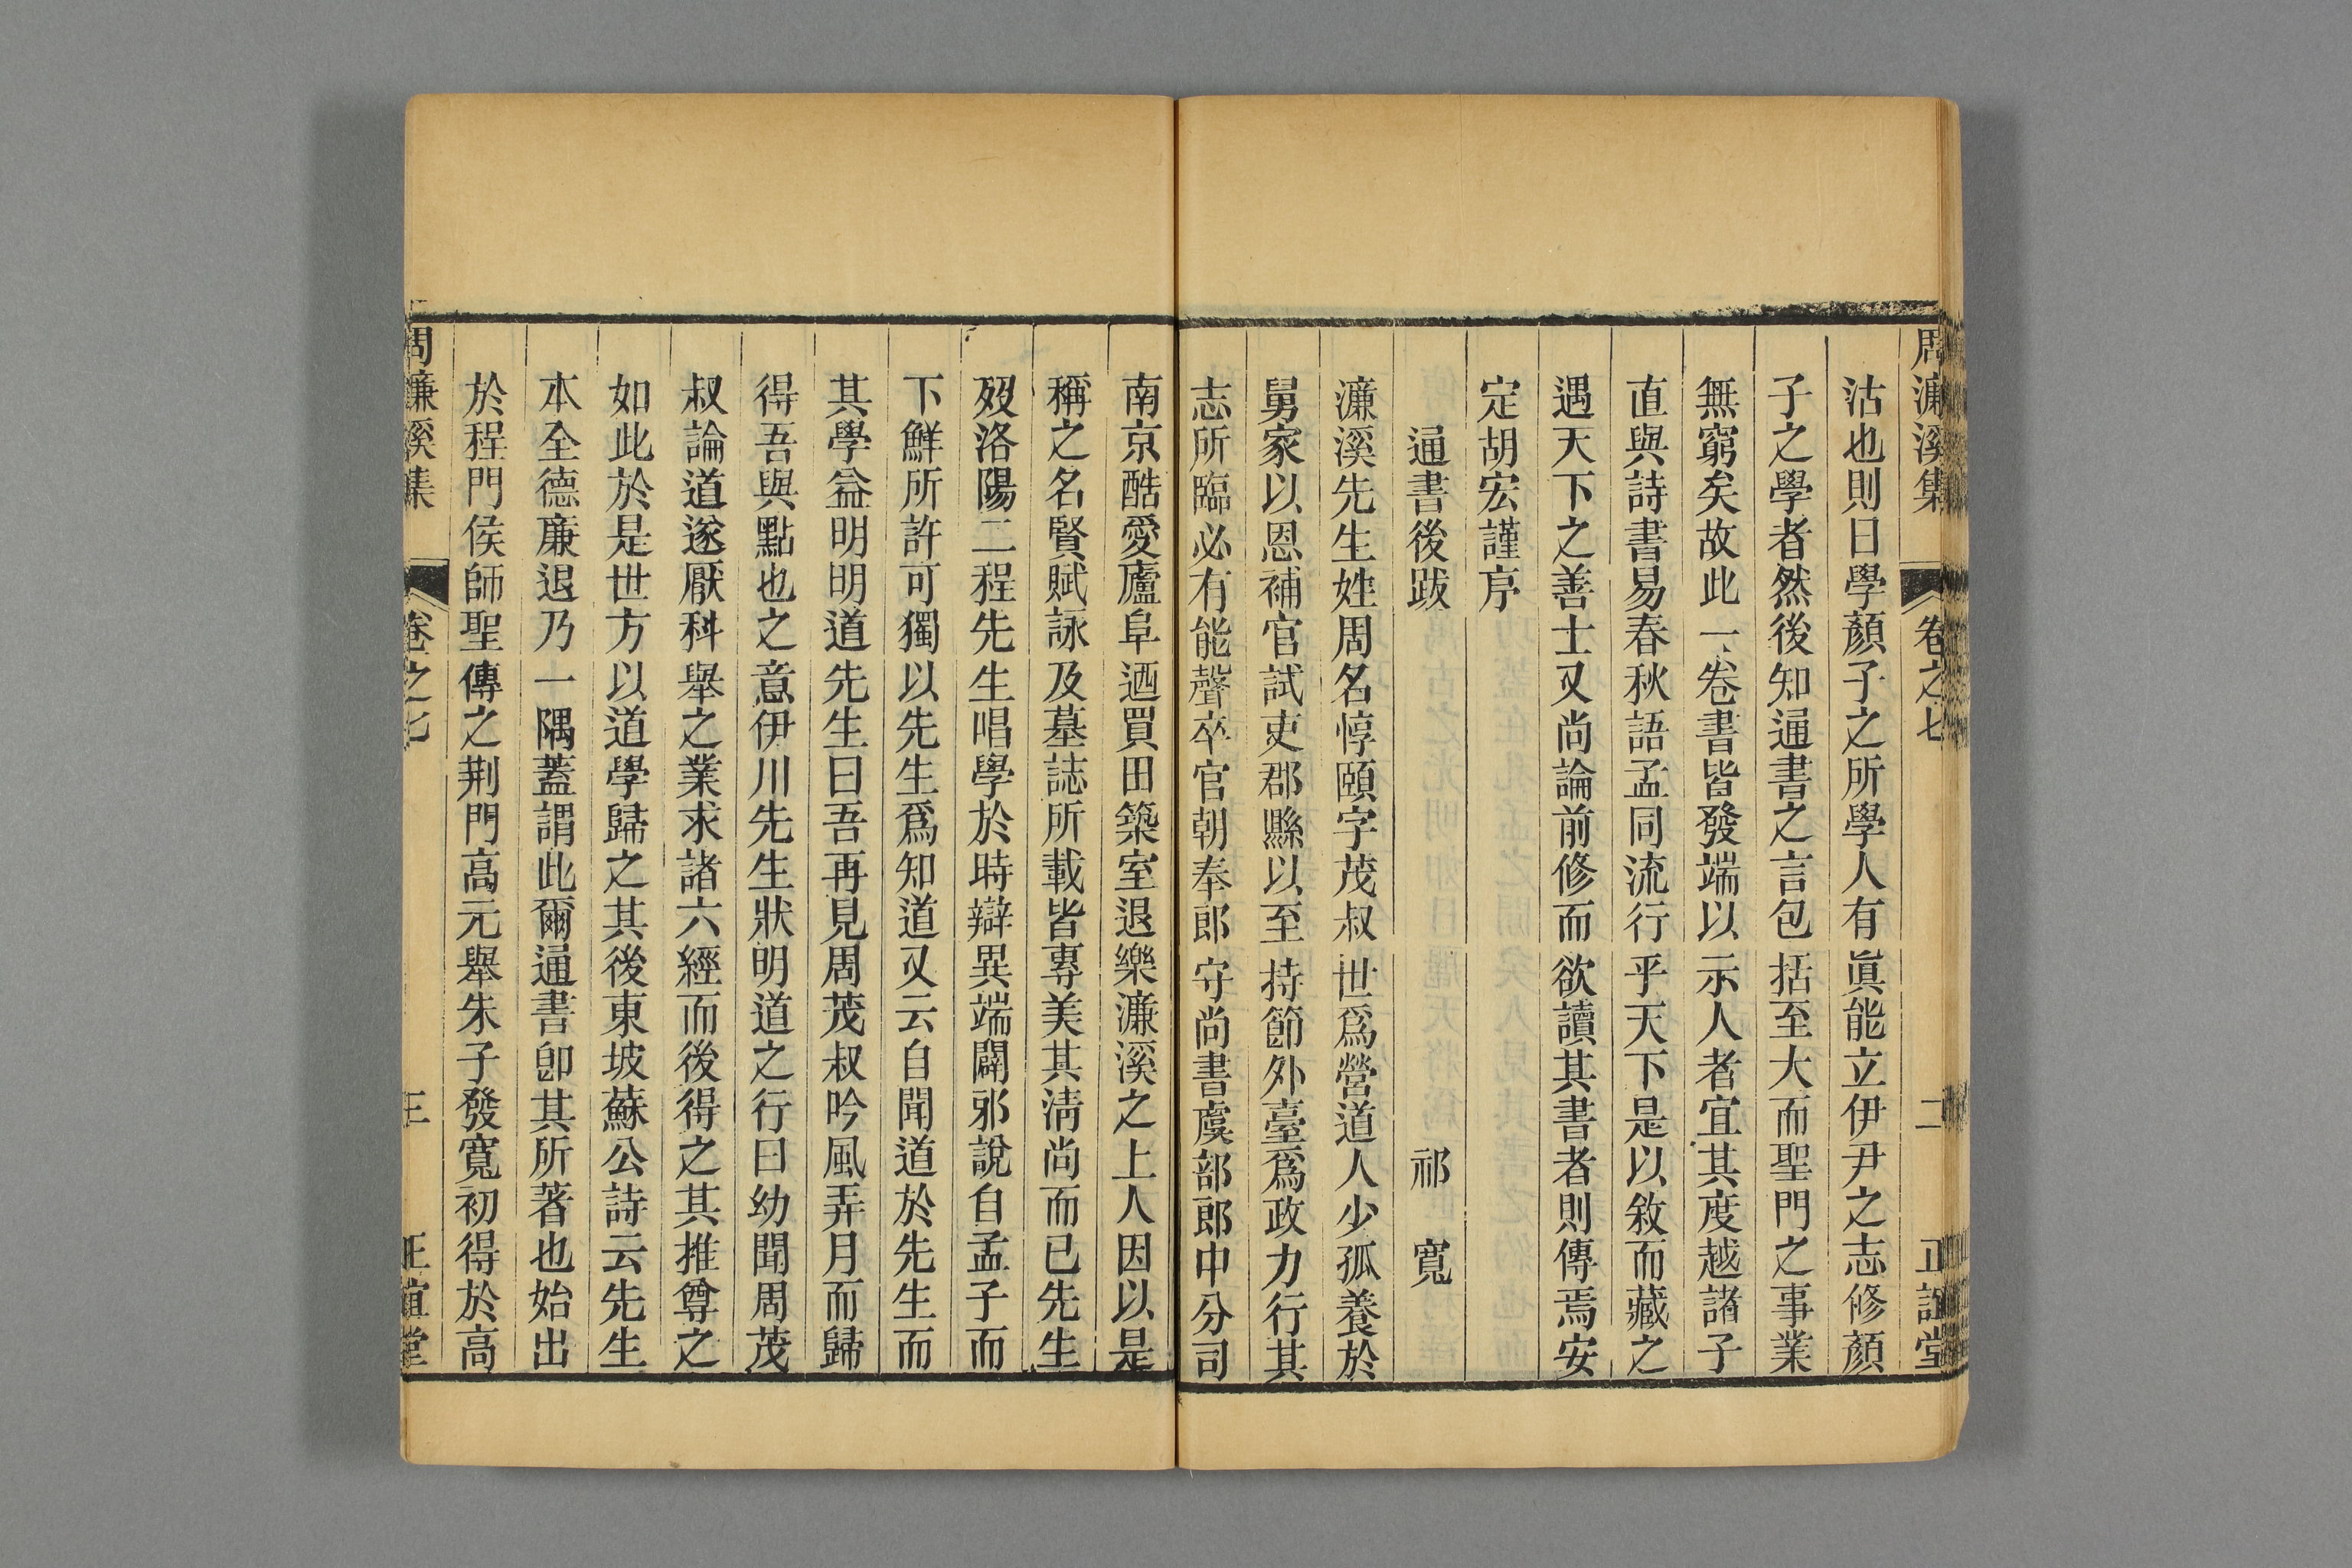 周濂溪集 卷之七 二 正誼堂
沽也則曰學顏子之所學人有眞能立伊尹之志修顏
子之學者然後知通書之言包括至大而聖門之事業
無窮矣故此一卷書皆發端以示人者宜其度越諸子
直與詩書易春秋語孟同流行乎天下是以敘而藏之
遇天下之善士又尚論前修而欲讀其書者則傳焉安
定胡宏謹序
通書後跋 祁寬
濂溪先生姓周名惇頤字茂叔世爲營道人少孤養於
舅家以恩補官試吏郡縣以至持節外臺爲政力行其
志所臨必有能聲卒官朝奉郎守尚書虞部郎中分司
南京酷愛廬阜迺買田築室退樂濂溪之上人因以是
稱之名賢賦詠及墓誌所載皆專美其清尚而已先生
歿洛陽二程先生唱學於時辯異端闢邪說自孟子而
下鮮所許可獨以先生爲知道又云自聞道於先生而
其學益明明道先生曰吾再見周茂叔吟風弄月而歸
得吾與點也之意伊川先生狀明道之行曰幼聞周茂
叔論道遂厭科舉之業求諸六經而後得之其推尊之
如此於是世方以道學歸之其後東坡蘇公詩云先生
本全德廉退乃一隅蓋謂此爾通書卽其所著也始出
於程門侯師聖傳之荆門高元舉朱子發寬初得於高
周濂溪集 卷之七 三 正誼堂